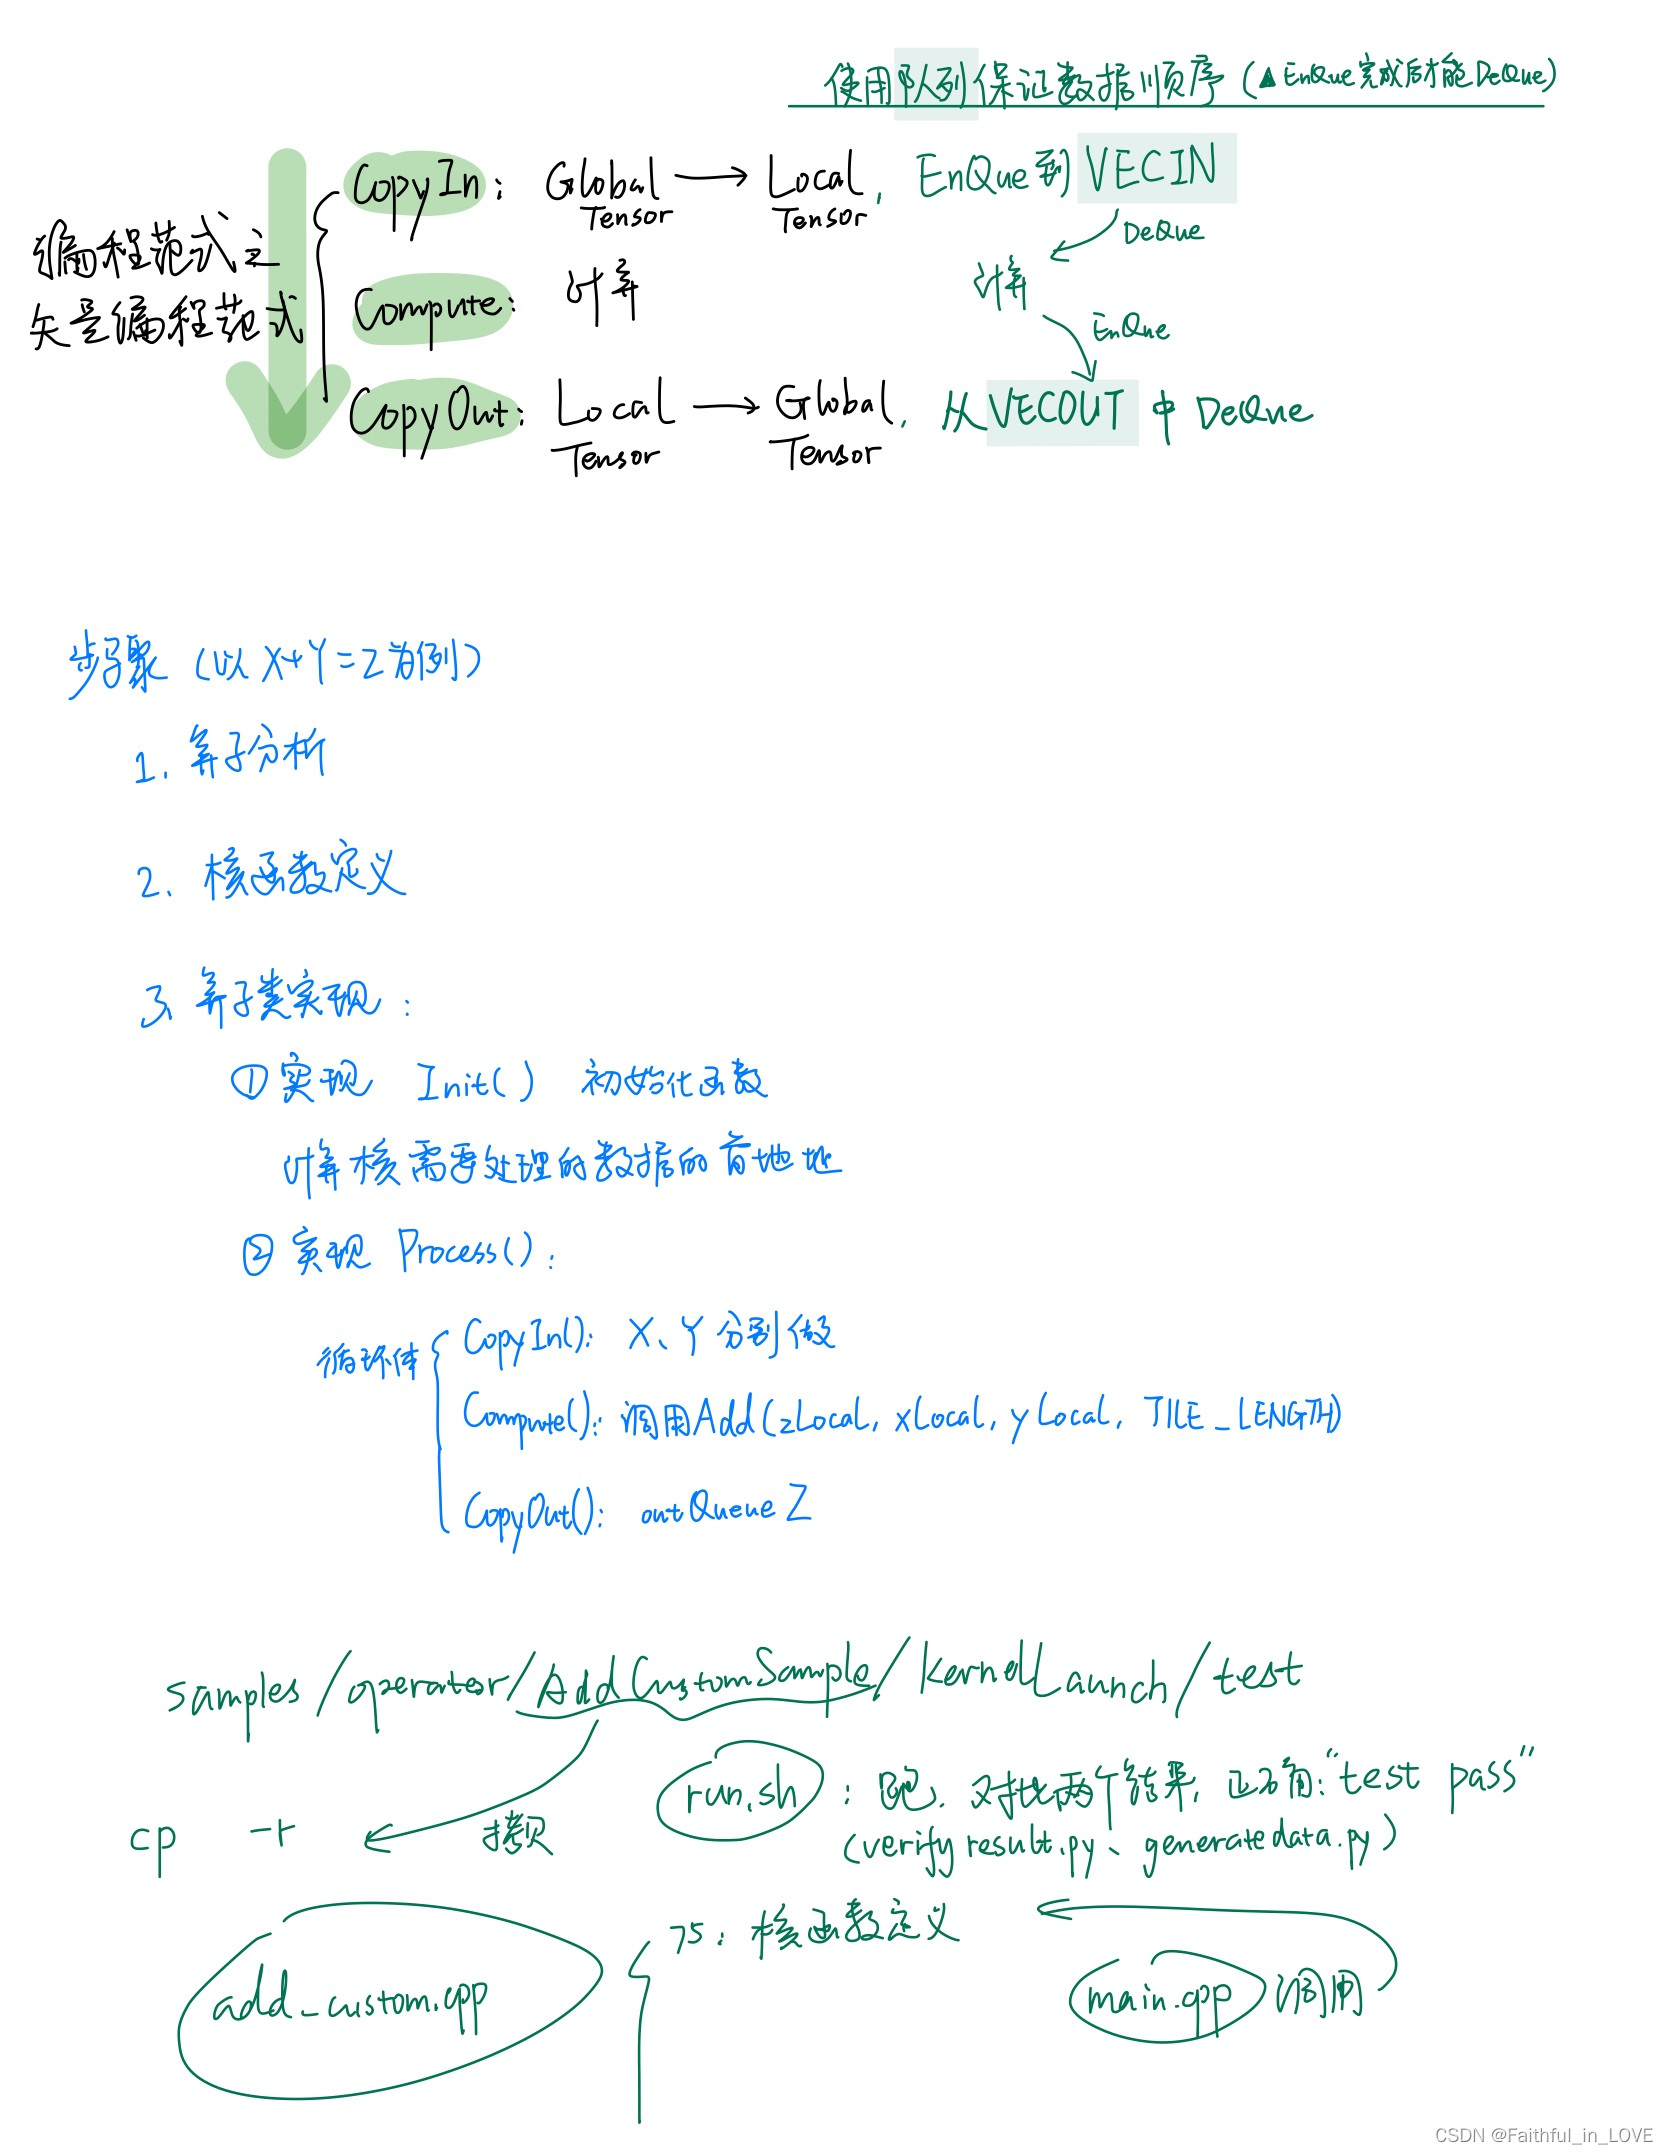 使用队列保证数据顺序（▲EnQue完成后才能DeQue）
编程范式之
矢量编程范式
CopyIn： Global Tensor → Local Tensor，EnQue到VECIN
DeQue
Compute： 计算
计算
EnQue
CopyOut： Local Tensor → Global Tensor，从VECOUT中DeQue
步骤（以X+Y=Z为例）
1. 算子分析
2. 核函数定义
3. 算子类实现：
① 实现 Init() 初始化函数
计算核需要处理的数据的首地址
② 实现 Process()：
循环体
CopyIn()： X、Y分别做
Compute()：调用Add(zLocal, xLocal, yLocal, TILE_LENGTH)
CopyOut()： outQueueZ
samples/operator/AddCustomSample/KernelLaunch/test
run.sh：跑，对比两个结果，正确：“test pass”
（verifyresult.py、generatedata.py）
cp -r ← 拷贝
add_custom.cpp
75：核函数定义
main.cpp 调用
CSDN @Faithful_in_LOVE